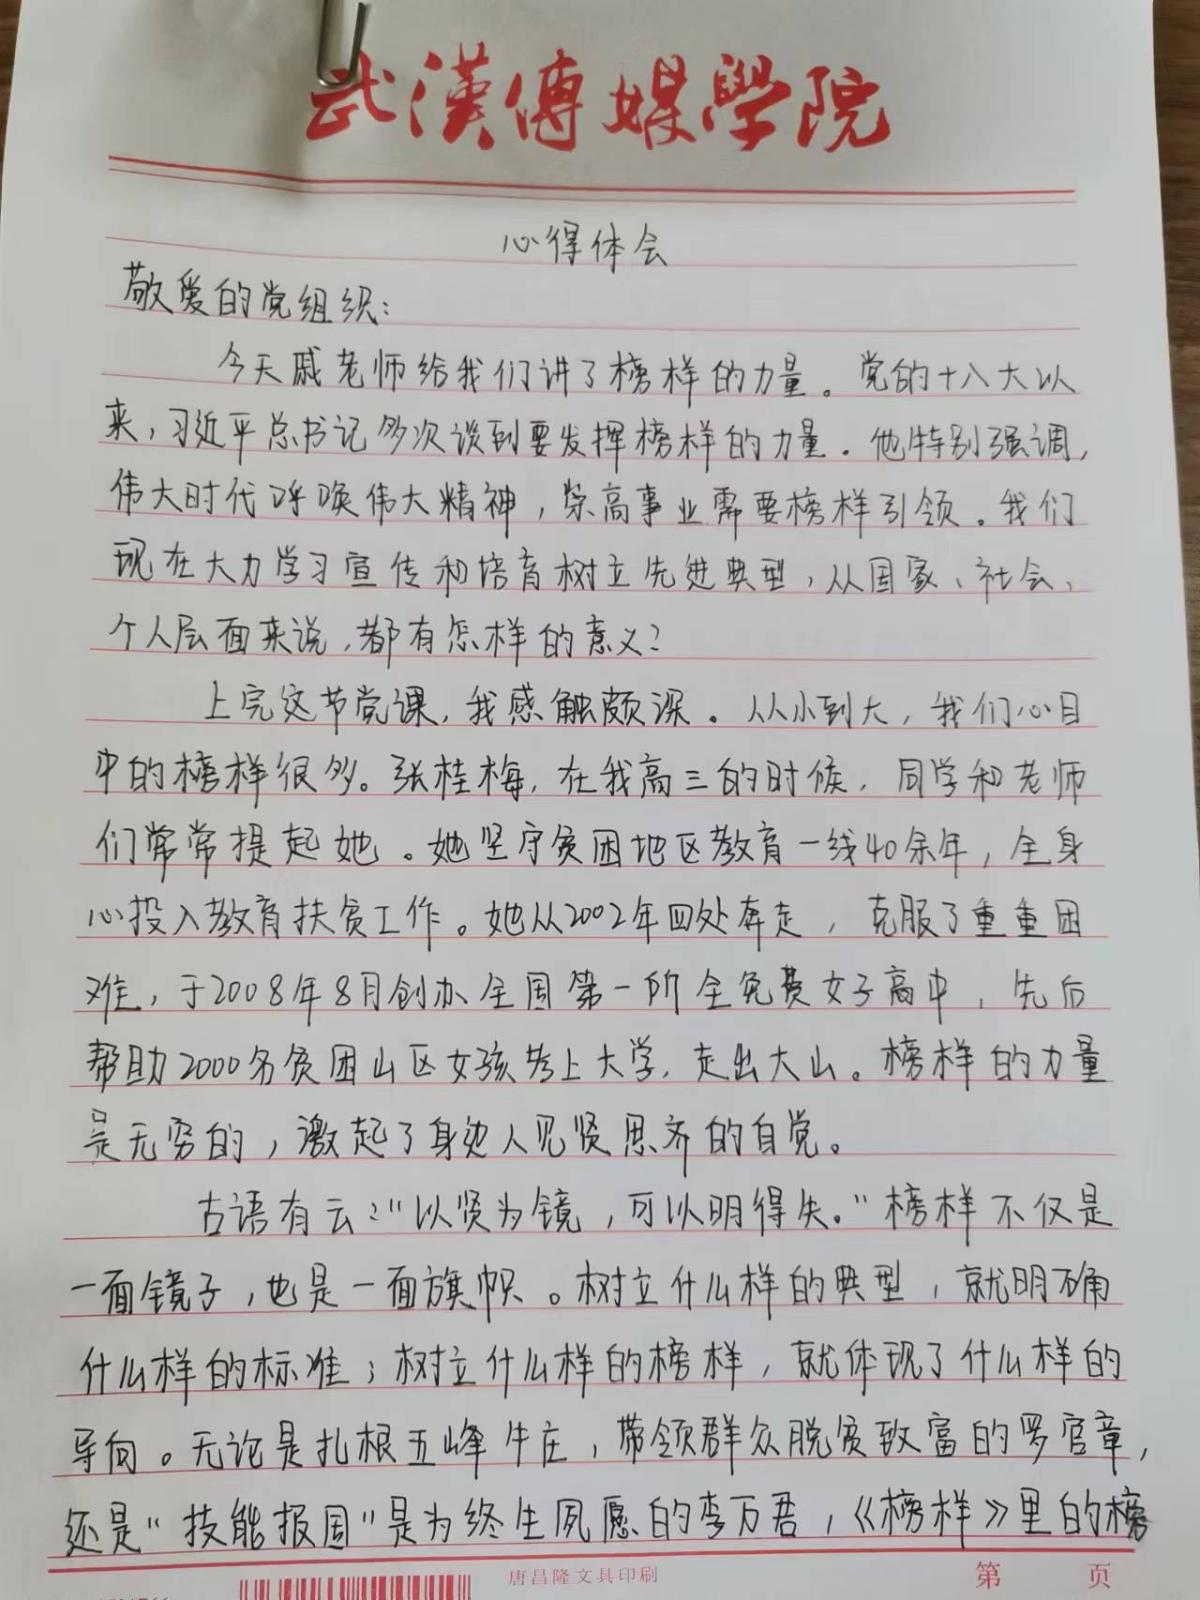 武漢傳媒學院
心得体会
敬爱的党组织:
今天戚老师给我们讲了榜样的力量。党的十八大以
来,习近平总书记多次谈到要发挥榜样的力量。他特别强调,
伟大时代呼唤伟大精神,崇高事业需要榜样引领。我们
现在大力学习宣传和培育树立先进典型,从国家、社会、
个人层面来说,都有怎样的意义?
上完这节党课,我感触颇深。从小到大,我们心目
中的榜样很多。张桂梅,在我高三的时候,同学和老师
们常常提起她。她坚守贫困地区教育一线40余年,全身
心投入教育扶贫工作。她从2002年四处奔走,克服了重重困
难,于2008年8月创办全国第一所全免费女子高中,先后
帮助2000名贫困山区女孩考上大学,走出大山。榜样的力量
是无穷的,激起了身边人见贤思齐的自觉。
古语有云:"以贤为镜,可以明得失。"榜样不仅是
一面镜子,也是一面旗帜。树立什么样的典型,就明确
什么样的标准;树立什么样的榜样,就体现了什么样的
导向。无论是扎根五峰牛庄,带领群众脱贫致富的罗官章,
还是"技能报国"是为终生夙愿的李万君,《榜样》里的榜
唐昌隆文具印刷
第 页